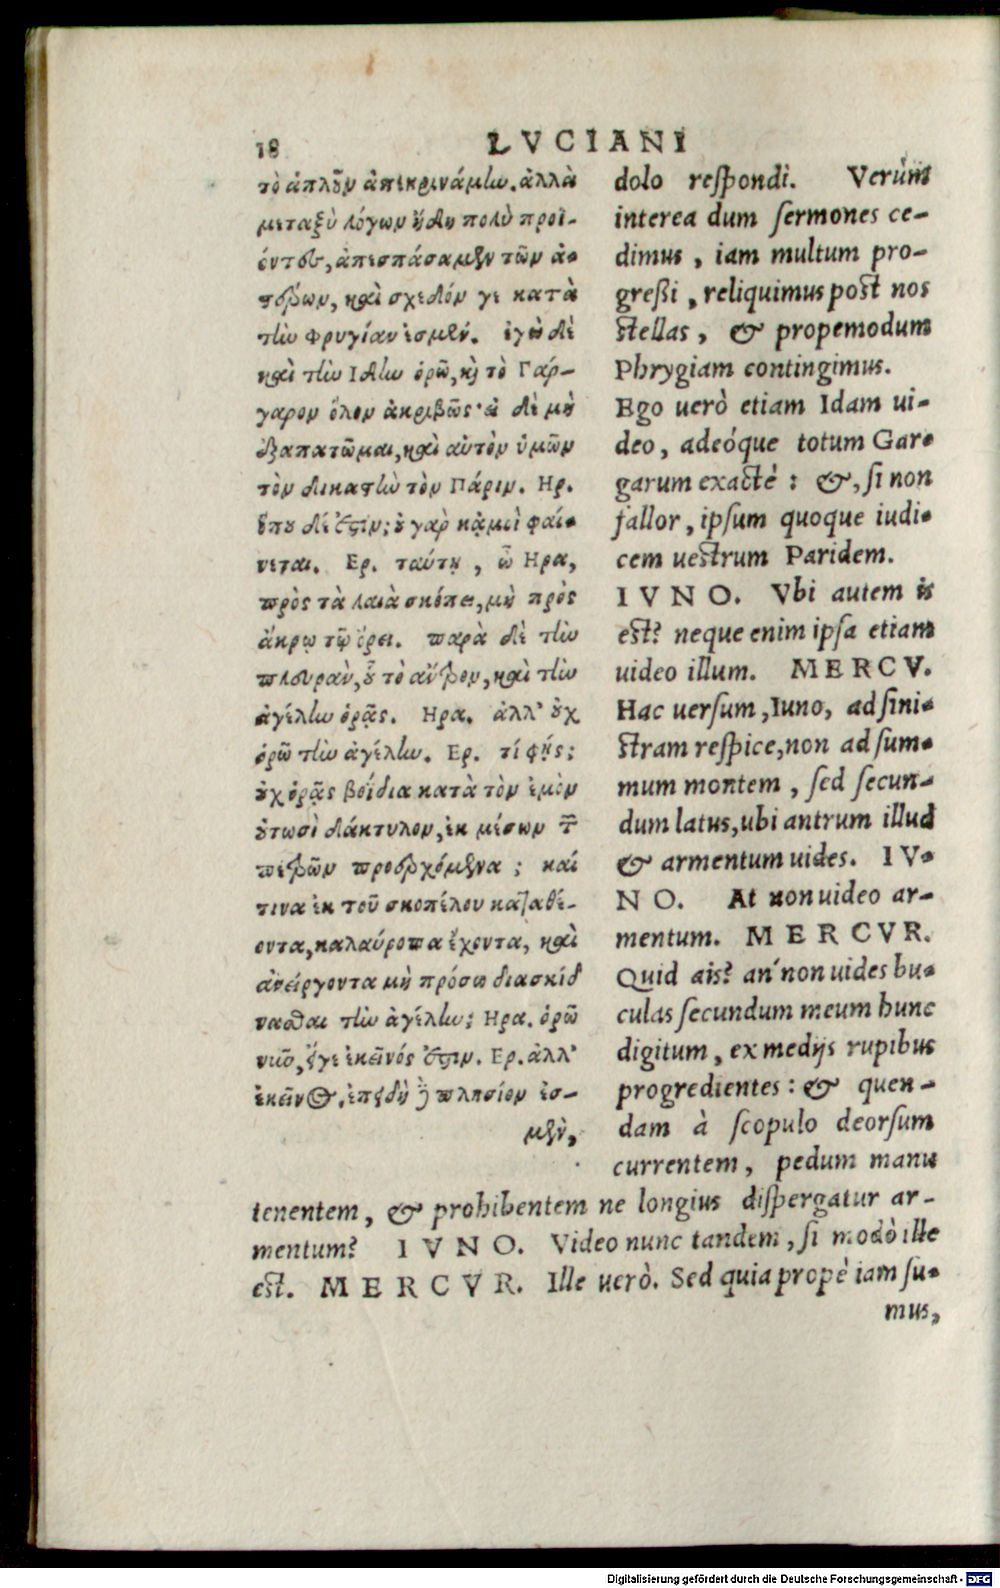 18
LVCIANI
τὸ ἁπλοῦν ἀπεκρινάμην. ἀλλὰ
μεταξὺ λόγων ἤδη πολὺ προϊ-
όντες, ἀπεσπάσαμεν τῶν ἀ-
στέρων, καὶ σχεδόν γε κατὰ
τὴν Φρυγίαν ἐσμέν. ἐγὼ δὲ
καὶ τὴν Ιδην ὁρῶ, καὶ τὸ Γάρ-
γαρον ὅλον ἀκριβῶς· εἰ δὲ μὴ
ἐξαπατῶμαι, καὶ αὐτὸν ὑμῶν
τὸν δικαστὴν τὸν Πάριν. Ηρ.
ὅπου δέ ἐστιν; οὐ γὰρ κᾀμοὶ φαί-
νεται. Ερ. ταύτῃ, ὦ Ηρα,
πρὸς τὰ λαιὰ σκόπει, μὴ πρὸς
ἄκρῳ τῷ ὄρει. παρὰ δὲ τὴν
πλευρὰν, οὗ τὸ ἄντρον, καὶ τὴν
ἀγέλην ὁρᾷς. Ηρα. ἀλλ' οὐχ
ὁρῶ τὴν ἀγέλην. Ερ. τί φῄς;
οὐχ ὁρᾷς βοΐδια κατὰ τὸν ἐμὸν
οὑτωσὶ δάκτυλον, ἐκ μέσων τῶν
πετρῶν προερχόμενα; καί
τινα ἐκ τοῦ σκοπέλου καταθέ-
οντα, καλαύροπα ἔχοντα, καὶ
ἀνείργοντα μὴ πρόσω διασκίδ
νασθαι τὴν ἀγέλην; Ηρα. ὁρῶ
νῦν, εἴγε ἐκεῖνός ἐστιν. Ερ. ἀλλ'
ἐκεῖνος. ἐπειδὴ δὲ πλησίον ἐσ-
μὲν,
dolo respondi. Verùm
interea dum sermones ce-
dimus, iam multum pro-
greßi, reliquimus post nos
stellas, & propemodum
Phrygiam contingimus.
Ego uerò etiam Idam ui-
deo, adeóque totum Gar-
garum exactè: &, si non
fallor, ipsum quoque iudi-
cem uestrum Paridem.
IVNO. Vbi autem is
est? neque enim ipsa etiam
uideo illum. MERCV.
Hac uersum, Iuno, ad sini-
stram respice, non ad sum-
mum montem, sed secun-
dum latus, ubi antrum illud
& armentum uides. IV-
NO. At non uideo ar-
mentum. MERCVR.
Quid ais? an' non uides bu-
culas secundum meum hunc
digitum, ex medijs rupibus
progredientes: & quen-
dam à scopulo deorsum
currentem, pedum manu
tenentem, & prohibentem ne longius dispergatur ar-
mentum? IVNO. Video nunc tandem, si modò ille
est. MERCVR. Ille uerò. Sed quia propè iam su-
mus,
Digitalisierung gefördert durch die Deutsche Forschungsgemeinschaft - DFG